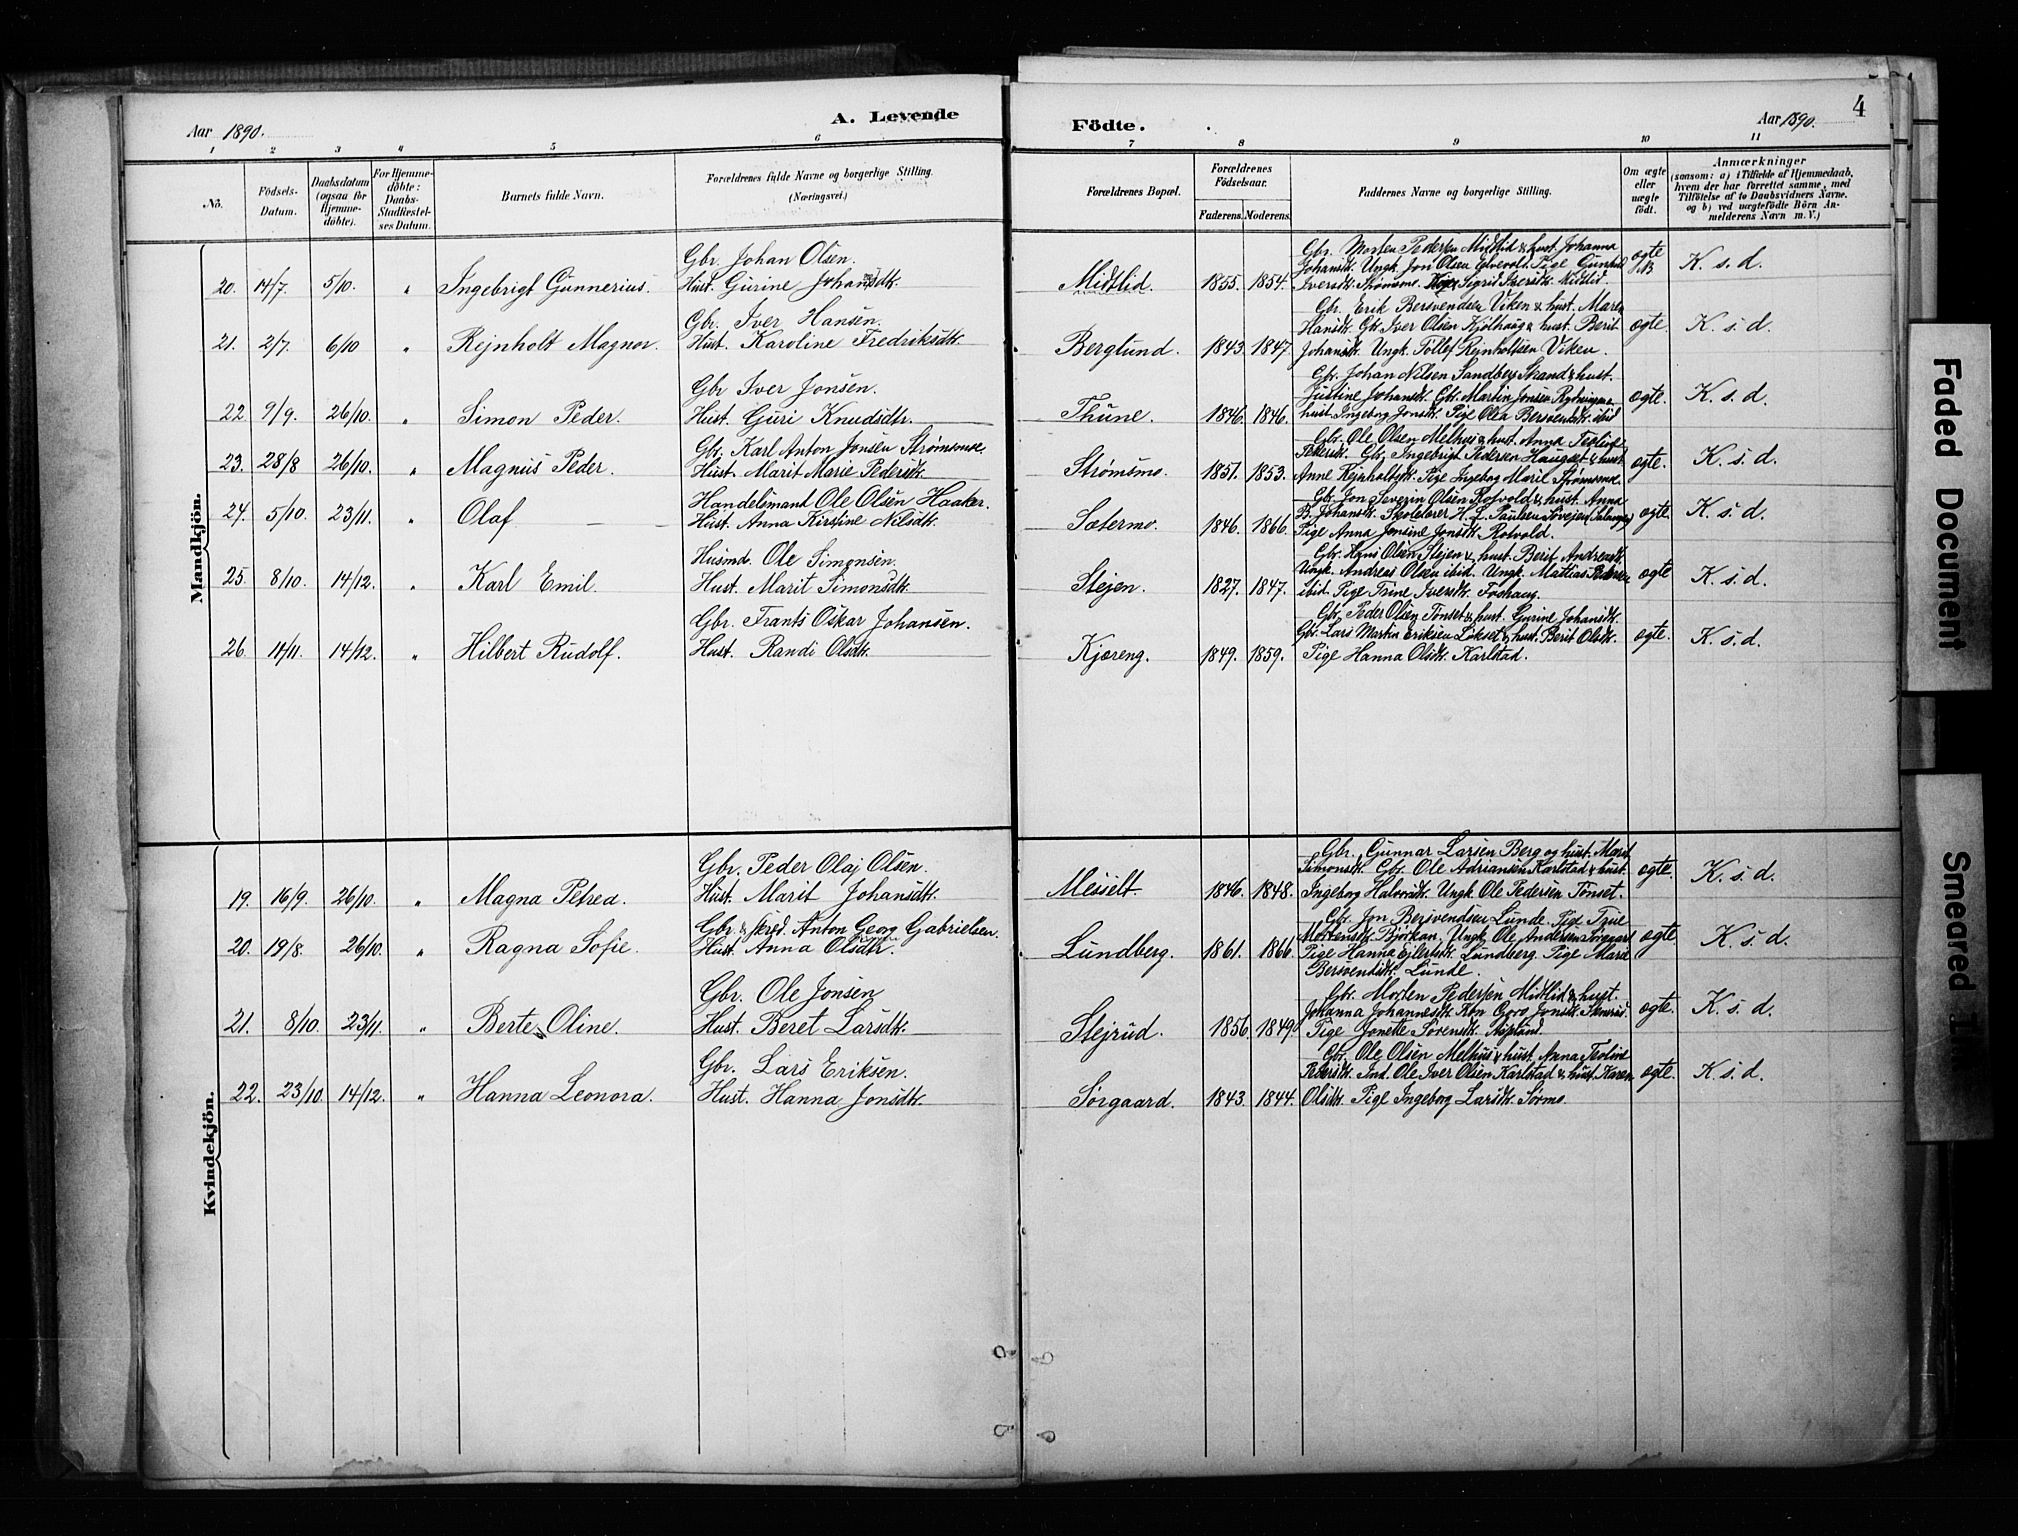 Aar 1890.
A. Levende
Födte.
Aar 1890.
4
1 2 3 4 5 6 7 8 9 10 11
No.
Födsels-
Datum.
Daabsdatum
(ogsaa for
Hjemme-
döbte).
For Hjemme-
döbte:
Daabs-
Stadfæstel-
ses Datum.
Barnets fulde Navn.
Forældrenes fulde Navne og borgerlige Stilling.
(Næringsvei.)
Forældrenes Bopæl.
Forældrenes
Födselsaar.
Faderens. Moderens.
Faddernes Navne og borgerlige Stilling.
Om ægte
eller
uægte
født.
Anmærkninger
(saasom: a) i Tilfælde af Hjemmedaab,
hvem der har forrettet samme, med
Tilföielse af to Daabsvidners Navne.
og b) ved uægtefödte Börn An-
melderens Navn m. V.)
Mandkjön.
Gbr. Johan Olsen.
20. 14/7. 5/10. " Ingebrigt Gunnerius. Hust. Gurine Johansdtr.
Midtlid. 1855. 1854.
Gbr. Morten Pedersen Midtlid & hust. Johanna
Johansdtr. Ungk. Jon Olsen Elvevold. Pige Gunhild
Iversdtr. Strømsmo. Sigrid Iversdtr. Midtlid.
ægte K. s. d.
Gbr. Iver Hansen.
21. 2/7. 6/10 " Rejnholt Magnor. Hust. Karoline Fredriksdtr.
Berglund. 1843. 1847.
Gbr. Erik Bersvendsen Viken & hust. Maren
Hansdtr. Gbr. Iver Olsen Kjølhaug & hust. Berit
Johansdtr. Ungk. Tollef Rejnholtsen Viken.
ægte. K. s. d.
Gbr Iver Jonsen.
22 9/9. 26/10. " Simon Peder. Hust. Guri Knudsdtr.
Thune. 1846. 1846.
Gbr. Johan Nilsen Sandberg Strand & hust.
Justine Johansdtr. Gbr. Martin Jonsen
hust. Ingeborg Jonsdtr. Pige Olea Bersvendsdtr. ibid
ægte. K. s. d.
Gbr. Karl Anton Jonsen Strømsmoe.
23. 28/8 26/10. " Magnus Peder. Hust. Marit Marie Pedersdtr.
Strømsmo. 1851. 1853.
Gbr. Ole Olsen Melhus & hust. Anna Teoline
Pedersdtr. Gbr. Ingebrigt Pedersen Haugset & hust
Anne Rejnholtsdtr. Pige Ingeborg Marie Strømsmoe.
ægte. K. s. d.
Handelsmand Ole Olsen Haaker.
24. 5/10. 23/11. " Olaf Hust. Anna Kirstine Nilsdtr.
Sætermo. 1846. 1866.
Gbr. Jon Severin Olsen Rotvold & hust. Anna
B. Johansdtr. Skolelærer H. L. Paulsen Løvejen (Salangen)
Pige Anna Jonsine Jonsdtr. Rotvold.
ægte K. s. d.
Husmd. Ole Simonsen.
25. 8/10. 14/12. " Karl Emil. Hust. Marit Simonsdtr.
Stejen. 1827. 1847.
Gbr. Hans Olsen Stejen & hust. Berit Andreasdtr.
Ungk. Andreas Olsen ibid. Ungk. Mattias Pedersen
ibid. Pige Trine Iversdtr. Foshaug.
ægte K. s. d.
Gbr. Frants Oskar Johansen.
26 11/11. 14/12. " Hilbert Rudolf. Hust. Randi Olsdtr.
Kjæreng. 1849. 1859.
Gbr. Peder Olsen Tønset & hust. Gurine Johansdtr.
Gbr. Lars Martin Eriksen Løkset & hust. Berit Olsdtr.
Pige Hanna Olsdtr. Karlstad.
ægte. K. s. d.
Kvindekjön.
Gbr. Peder Olaj Olsen.
19. 16/9. 26/10. " Magna Petrea. Hust. Marit Johansdtr.
Messelt. 1846. 1848.
Gbr. Gunnar Larsen Berg og hust. Marit
Simonsdtr. Gbr. Ole Adriansen Karlstad & hust.
Ingeborg Halvordtr. Ungk. Ole Pedersen Tønset.
ægte. K. s. d.
Gbr & skrd. Anton Georg Gabrielsen.
20. 19/8. 26/10. " Ragna Sofie. Hust. Anna Olsdtr.
Lundberg. 1861. 1866.
Gbr. Jon Bersvendsen Lunde. Pige Trine
Mortensdtr. Bjørkan. Ungk. Ole Andersen Sørgaard
Pige Hanna Ejlertsdtr. Lundberg. Pige Marie
Bersvendsdtr. Lunde.
ægte K. s. d.
Gbr. Ole Jonsen
21. 8/10. 23/11. " Berte Oline. Hust. Beret Larsdtr.
Stejrud. 1856. 1849.
Gbr. Morten Pedersen Midtlid & hust.
Johanna Johannesdtr. Kon Goro Jonsdtr.
Pige Jonette Sørensdtr.
ægte. K. s. d.
Gbr. Lars Eriksen.
22. 23/10 14/12. " Hanna Leonora. Hust. Hanna Jonsdtr.
Sørgaard. 1843. 1844.
Gbr. Ole Olsen Melhus & hust. Anna Teoline
Pedersdtr. Ind. Ole Iver Olsen Karlstad & hust. Karen
Olsdtr. Pige Ingeborg Larsdtr. Sørmo.
ægte. K. s. d.
Faded Document
Smeared